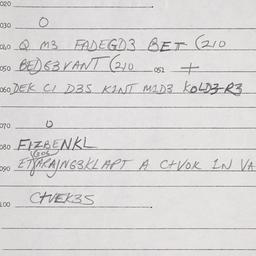 020
030 O
040 Q M3 FADEGD3 BET (210
050 BED63VANT (210 051 +
060 DEK C1 D3S K1NT M1D3 KOLD3R3
070 O
080 FIZBENKL
090 A C+VOK 1N VA
100 C+VEK3S